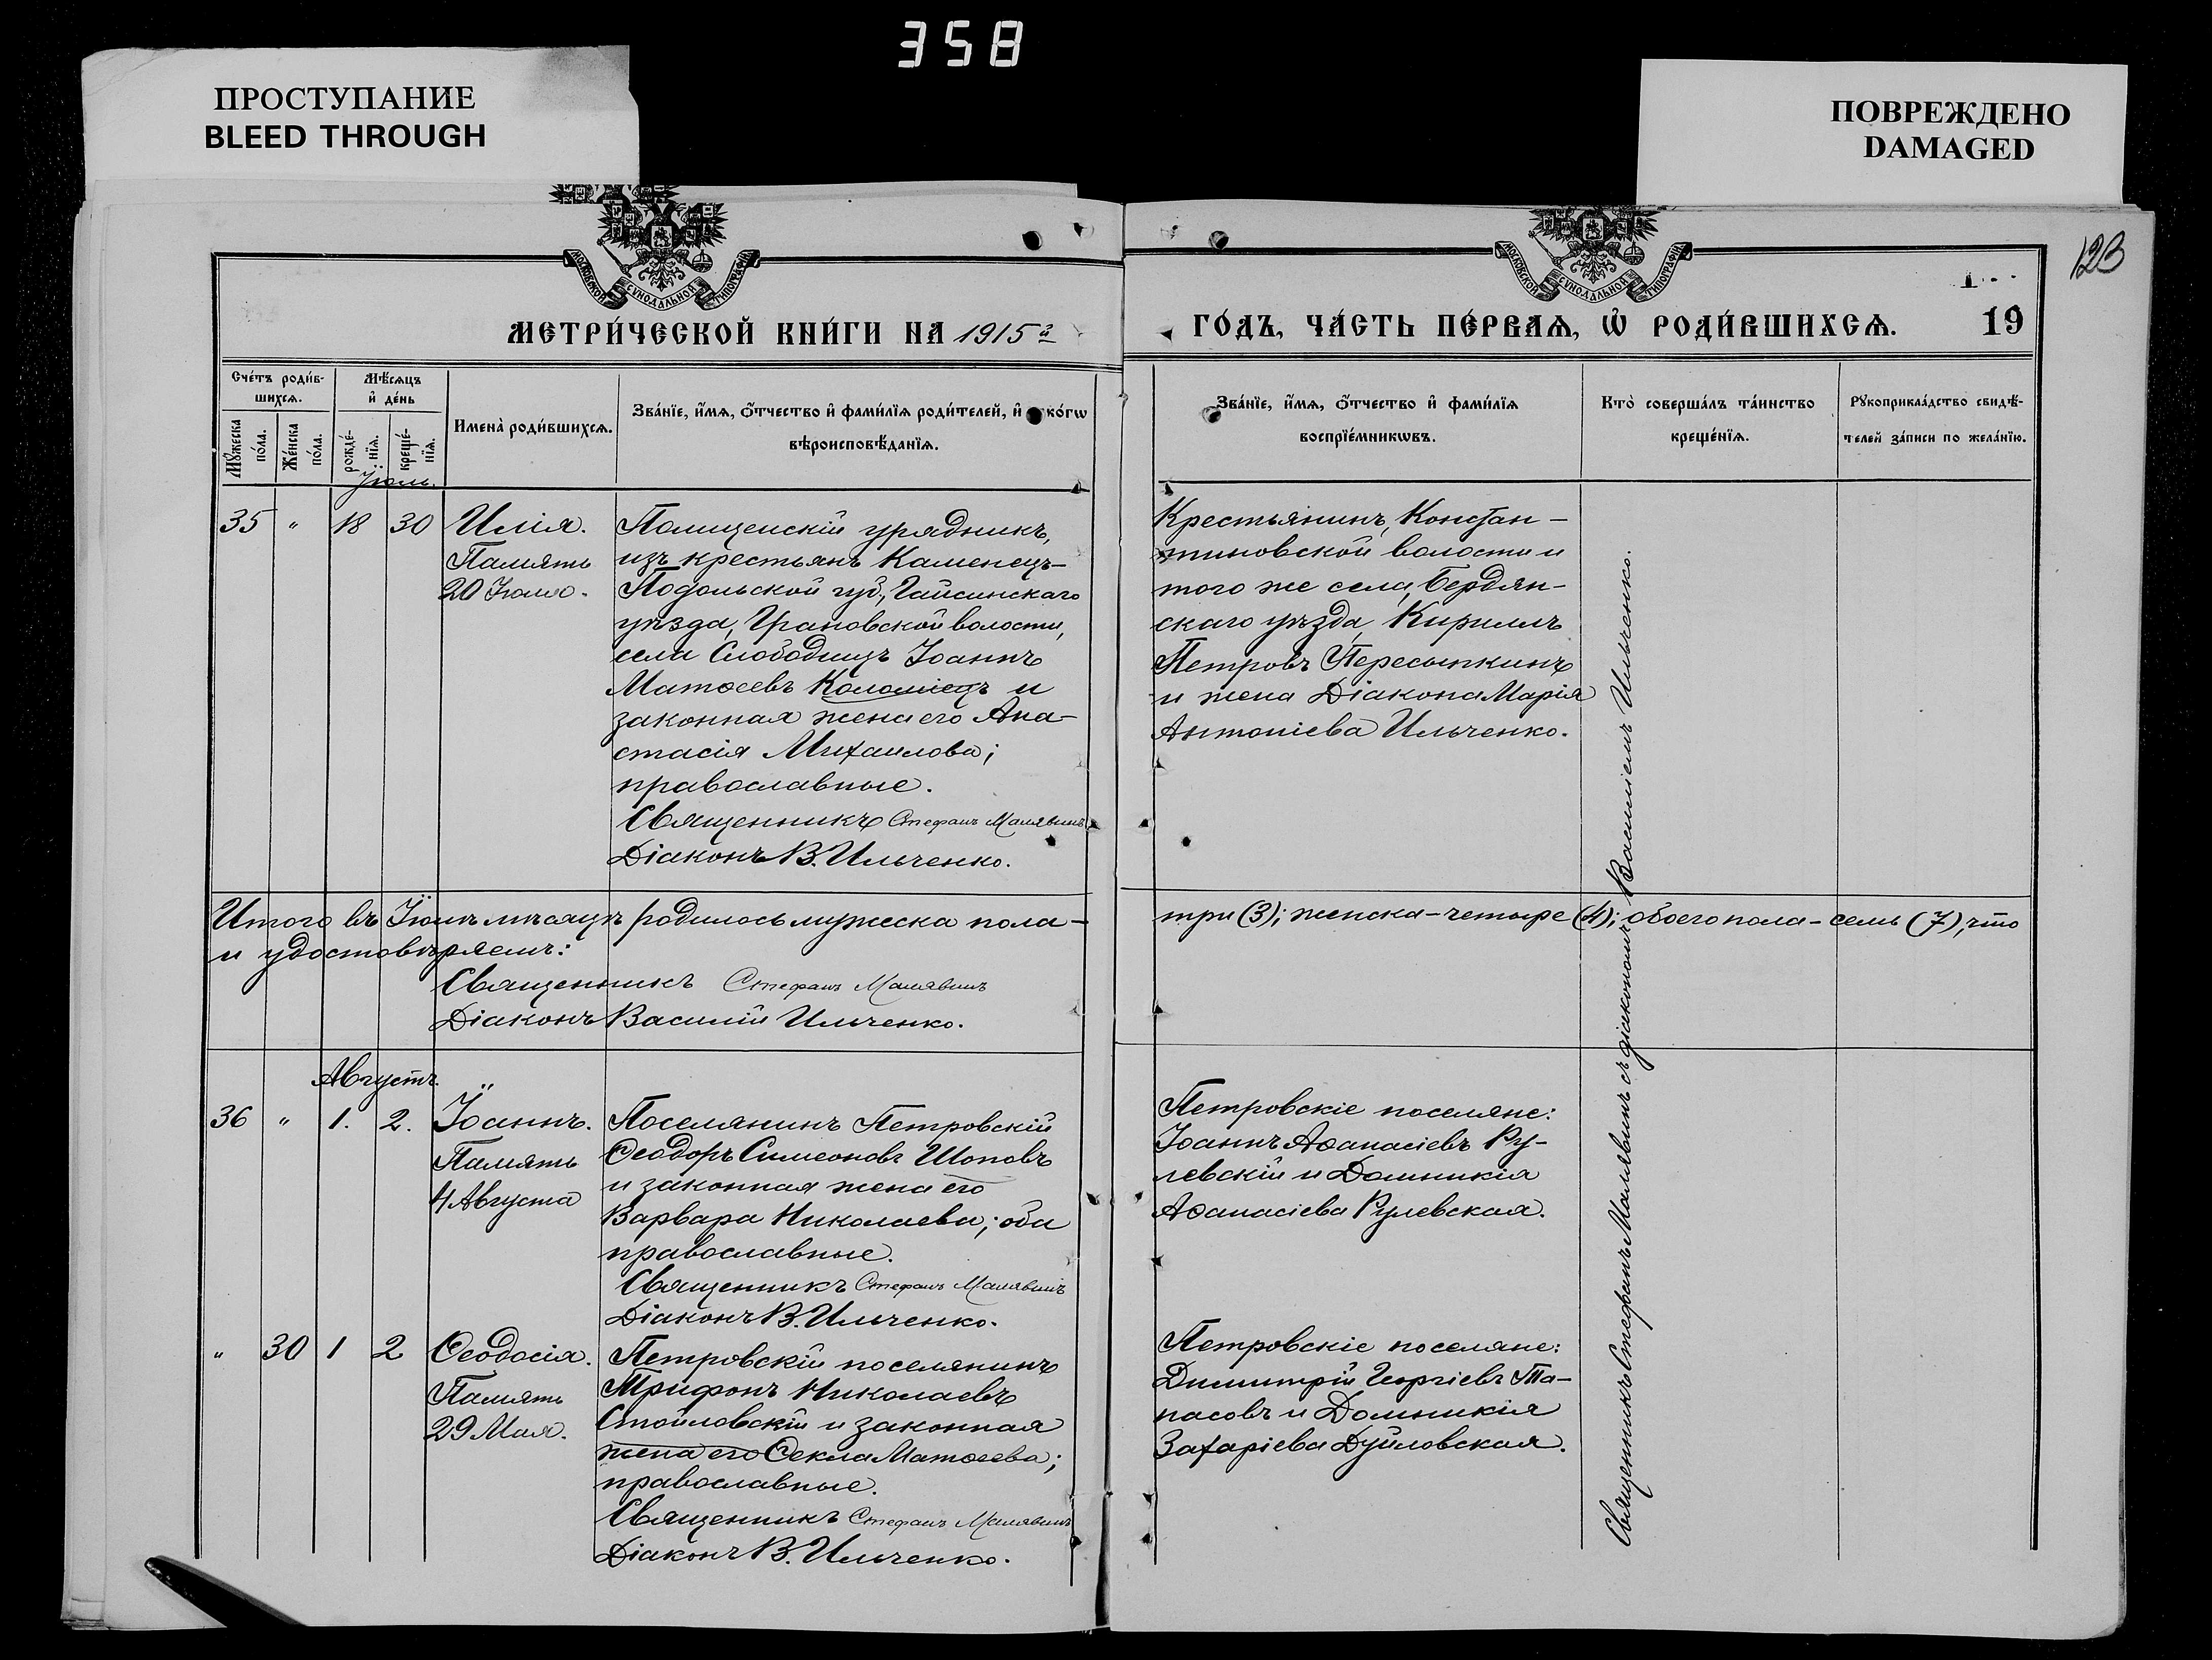 358
ПРОСТУПАНИЕ
BLEED THROUGH
ПОВРЕЖДЕНО
DAMAGED
123
МОСКОВСКОЙ СѴНОДАЛЬНОЙ ТИПОГРАФІИ
МОСКОВСКОЙ СѴНОДАЛЬНОЙ ТИПОГРАФІИ
МЕТРИ́ЧЕСКОЙ КНИ́ГИ НА 1915 г
ГО́ДЪ, ЧА́СТЬ ПЕ́РВАѦ, Ѡ҆ РОДИ́ВШИХСѦ. 19
Сче́тъ роди́в-
шихсѧ.
Мѣ́сѧцъ
и҆ де́нь
Мꙋ́жеска
по́ла.
Же́нска
по́ла.
рожде́-
нїѧ.
креще́-
нїѧ.
Имена̀ роди́вшихсѧ.
Зва́нїе, и҆́мѧ, ѻ҆́тчество и҆ фами́лїѧ роди́телей, и҆ ко́гѡ
вѣроисповѣ́данїѧ.
Зва́нїе, и҆́мѧ, ѻ҆́тчество и҆ фами́лїѧ
воспрїе́мникѡвъ.
Кто̀ соверша́лъ та́инство
креще́нїѧ.
Рꙋкоприкла́дство свидѣ́-
телей за́писи по жела́нїю.
Іюль.
35 " 18 30 Илія.
Память
20 Іюля.
Полицейскій урядникъ,
изъ крестьянъ Каменецъ-
Подольской губ., Гайсинскаго
уѣзда, Грановской волости,
села Слободищъ Іоаннъ
Матѳеевъ Коломіецъ и
законная жена его Ана-
стасія Михаилова;
православные.
Священникъ Стефанъ Малявинъ
Діаконъ В. Ильченко.
Крестьянинъ, Констан-
тиновской волости и
того же села, Бердян-
скаго уѣзда, Кириллъ
Петровъ Пересыпкинъ
и жена Діакона Марія
Антоніева Ильченко.
Священникъ Стефанъ Малявинъ съ діакономъ Василіемъ Ильченко.
Итого въ Іюлѣ мѣсяцѣ родилось мужеска пола - три (3); женска - четыре (4); обоего пола - семь (7), что
и удостовѣряемъ:
Священникъ Стефанъ Малявинъ
Діаконъ Василій Ильченко.
Августъ.
36 " 1. 2. Іоаннъ.
Память
4 Августа
Поселянинъ Петровскій
Ѳеодоръ Симеоновъ Шоповъ
и законная жена его
Варвара Николаева; оба
православные.
Священникъ Стефанъ Малявинъ
Діаконъ В. Ильченко.
Петровскіе поселяне:
Іоаннъ Аѳанасіевъ Ру-
левскій и Домникія
Аѳанасіева Рулевская.
" 30 1 2 Ѳеодосія.
Память
29 Мая.
Петровскій поселянинъ
Трифонъ Николаевъ
Стойловскій и законная
жена его Ѳекла Матѳеева;
православные.
Священникъ Стефанъ Малявинъ
Діаконъ В. Ильченко.
Петровскіе поселяне:
Димитрій Георгіевъ Та-
насовъ и Домникія
Захаріева Дуйловская.